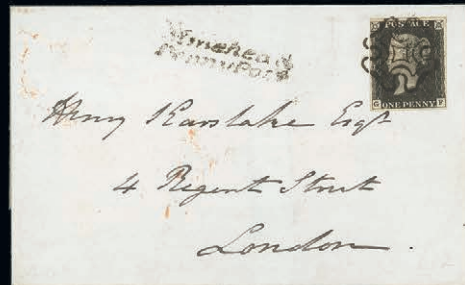 Minehead
Penny Post
POSTAGE
G F
ONE PENNY
Henry Karslake Esqr
4 Regent Street
London.